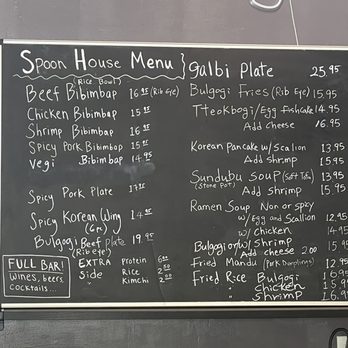 Spoon House Menu
(Rice Bowl)
Beef Bibimbap 16.95 (Rib Eye)
Chicken Bibimbap 15.95
Shrimp Bibimbap 16.95
Spicy Pork Bibimbap 15.95
Vegi Bibimbap 14.95
Spicy Pork Plate 17.95
Spicy Korean Wing 14.95
(6pc)
Bulgogi Beef Plate 19.95
(Rib eye)
EXTRA Protein
Side Rice
" Kimchi
FULL BAR!
wines, beers,
cocktails...
Galbi Plate 25.95
Bulgogi Fries (Rib Eye) 15.95
Tteokbogi/Egg Fishcake 14.95
Add Cheese 16.95
Korean Pancake w/Scallion 13.95
Add shrimp 15.95
Sundubu Soup (Soft Tofu) 13.95
(Stone Pot) Add Shrimp 15.95
Ramen Soup Non or spicy
w/Egg and Scallion 12.95
w/chicken 14.95
Bulgogi or w/Shrimp 15.95
Add cheese 2.00
Fried Mandu (Pork Dumplings) 12.95
Fried Rice Bulgogi
" chicken 15.95
" shrimp 16.95